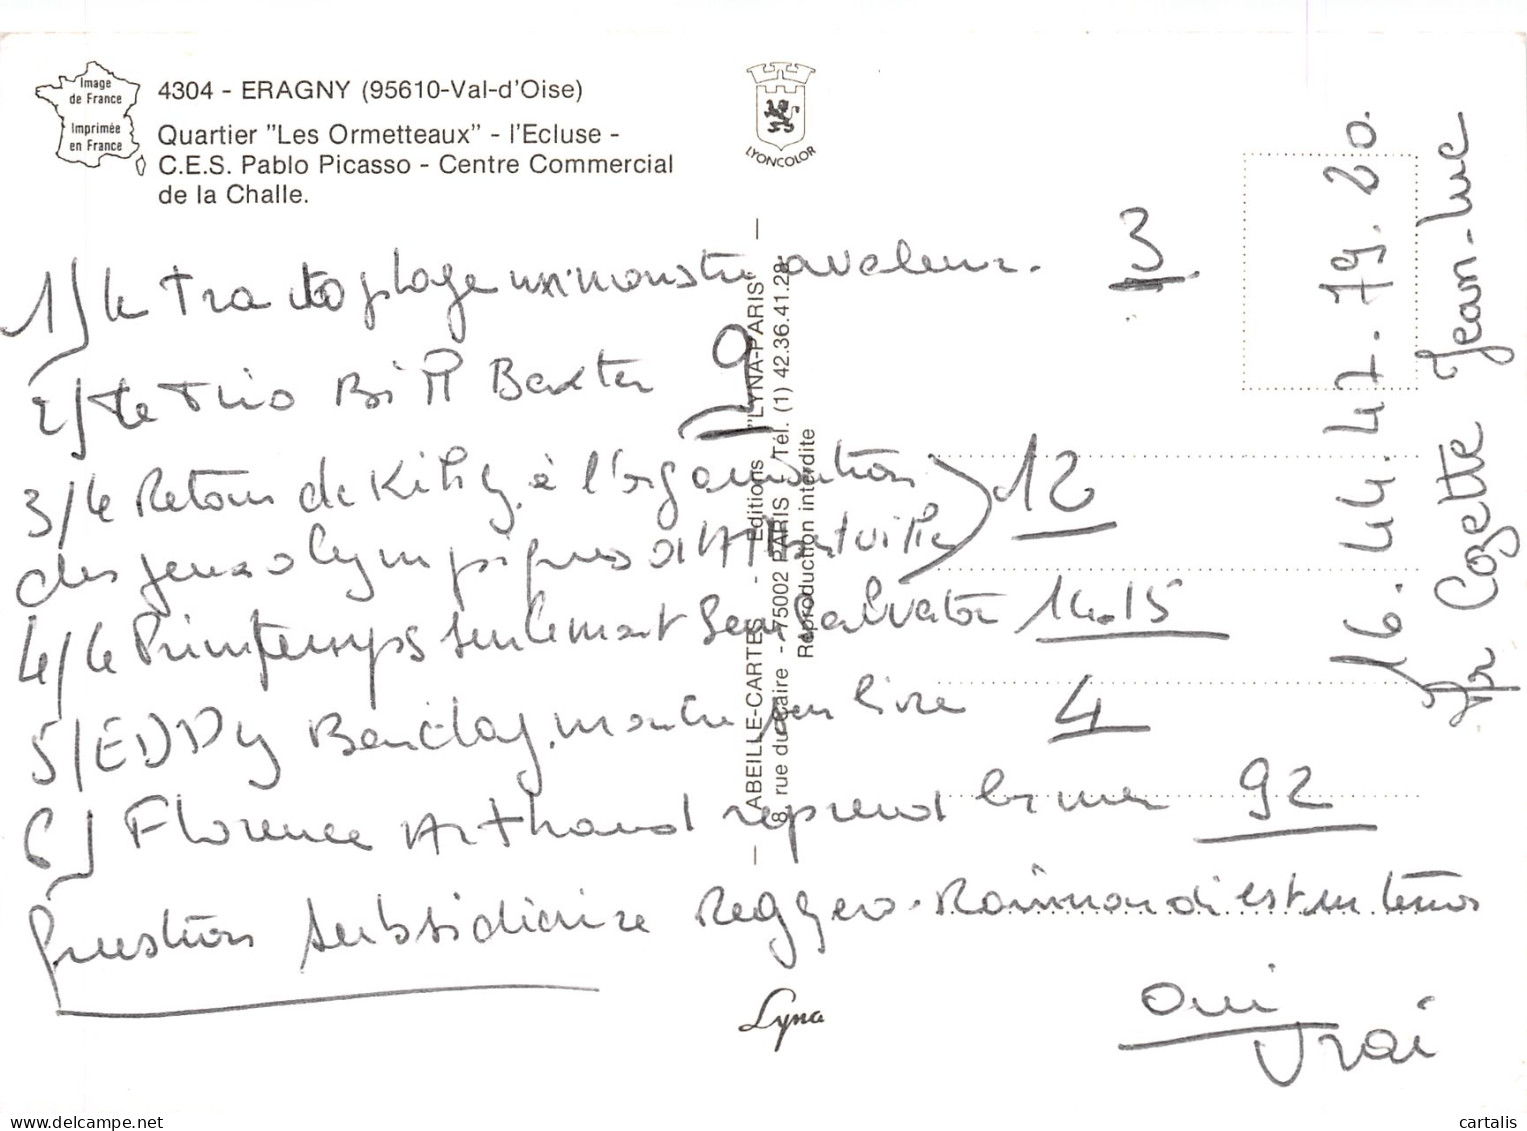 Image
de France
Imprimée
en France
4304 - ERAGNY (95610-Val-d'Oise)
Quartier "Les Ormetteaux" - l'Ecluse -
C.E.S. Pablo Picasso - Centre Commercial
de la Challe.
LYONCOLOR
1/ le Tractoplage un monstre avaleur. 3
2/ Le Trio Bill Baxter 9
3/ le Retour de Killy à l'organisation
des jeux olympiques d'Albertville 12
4/ le Printemps seulement Salvator 14.15
5/ EDDy Barclay, montre son livre 4
6/ Florence Arthaud reprend la mer 92
question subsidiaire Reggero. Raimondi est un ténor
oui
vrai
ABEILLE-CARTES - Editions "LYNA-PARIS"
8, rue du Caire - 75002 PARIS - Tél. (1) 42.36.41.28
Reproduction interdite
Lyna
16. 44. 41. 79. 20.
Mr Cozette Jean-Luc
cartalis